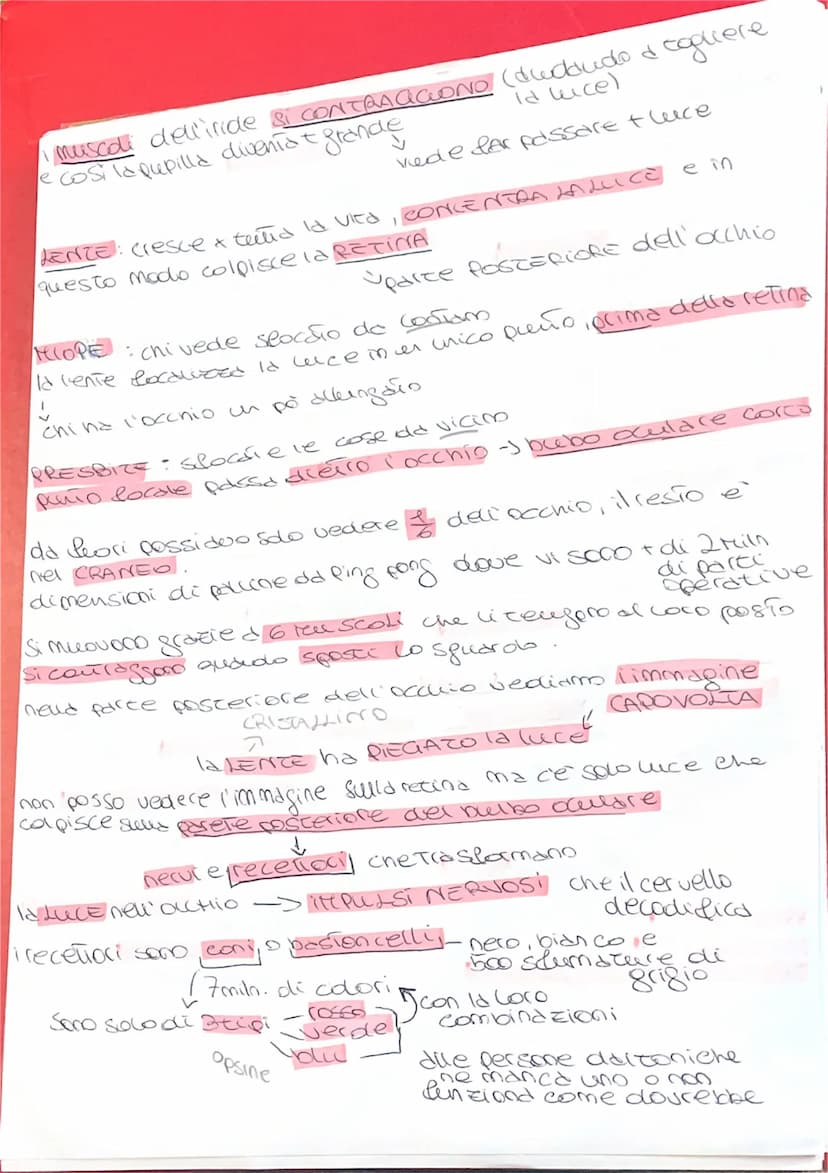 i muscoli dell'iride si CONTRAGGONO (aiutando a togliere la luce)
e così la pupilla diventa + grande
vuole far passare + luce
LENTE: cresce x tutta la vita, CONCENTRA LA LUCE e in
questo modo colpisce la RETINA
parte POSTERIORE dell'occhio
MIOPE: chi vede sfocato da lontano
la lente focalizza la luce in un unico punto, prima della retina
chi ha l'occhio un pò allungato
PRESBITE: sfocate le cose da vicino
punto focale passa dietro l'occhio -> bulbo oculare corto
da fuori possiamo solo vedere 1/6 dell'occhio, il resto è
nel CRANEO.
dimensioni di palline da Ping pong dove vi sono + di 2 Miln
di parti
operative
Si muovono grazie a 6 muscoli che li tengono al loro posto
Si contraggono quando sposti lo sguardo.
nella parte posteriore dell'occhio vediamo l'immagine
CAPOVOLTA
CRISTALLINO
la LENTE ha PIEGATO la luce
non posso vedere l'immagine sulla retina ma c'è solo luce che
colpisce sulla parete posteriore del bulbo oculare
nervi e recettori che trasformano
la LUCE nell'occhio -> IMPULSI NERVOSI che il cervello
decodifica
i recettori sono coni, o bastoncelli, - nero, bianco e
500 sfumature di
grigio
7 miln. di colori
con la loro
combinazioni
Sono solo di 3 tipi - rosso
verde
blu
opsine
alle persone daltoniche
ne manca uno o non
funziona come dovrebbe